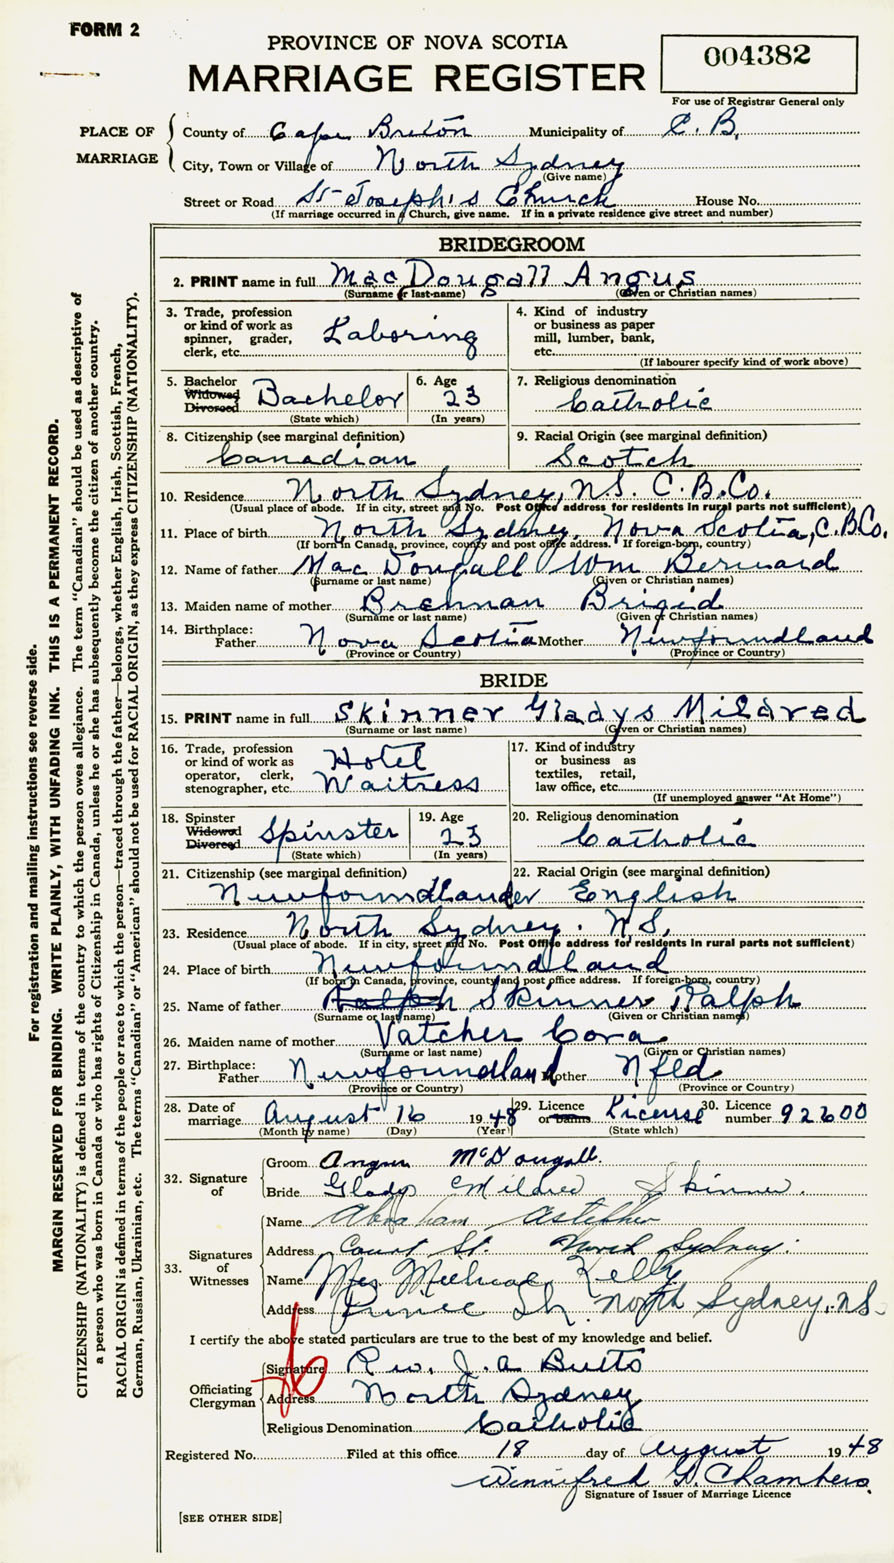 FORM 2
PROVINCE OF NOVA SCOTIA
MARRIAGE REGISTER
004382
For use of Registrar General only
PLACE OF MARRIAGE
County of Cape Breton Municipality of C. B.
City, Town or Village of North Sydney
(Give name)
Street or Road St Joseph's Church House No.
(If marriage occurred in a Church, give name. If in a private residence give street and number)
BRIDEGROOM
2. PRINT name in full MacDougall Angus
(Surname or last-name) (Given or Christian names)
3. Trade, profession or kind of work as spinner, grader, clerk, etc. Laboring
4. Kind of industry or business as paper mill, lumber, bank, etc.
(If labourer specify kind of work above)
5. Bachelor Widowed Divorced Bachelor
(State which)
6. Age 23
(In years)
7. Religious denomination Catholic
8. Citizenship (see marginal definition) Canadian
9. Racial Origin (see marginal definition) Scotch
10. Residence North Sydney, N.S. C.B.Co.
(Usual place of abode. If in city, street and No. Post Office address for residents in rural parts not sufficient)
11. Place of birth North Sydney, Nova Scotia, C.B.Co.
(If born in Canada, province, county and post office address. If foreign-born, country)
12. Name of father MacDougall Wm Bernard
(Surname or last name) (Given or Christian names)
13. Maiden name of mother Brennan Brigid
(Surname or last name) (Given or Christian names)
14. Birthplace: Father Nova Scotia Mother Newfoundland
(Province or Country) (Province or Country)
BRIDE
15. PRINT name in full Skinner Gladys Mildred
(Surname or last name) (Given or Christian names)
16. Trade, profession or kind of work as operator, clerk, stenographer, etc. Hotel Waitress
17. Kind of industry or business as textiles, retail, law office, etc.
(If unemployed answer "At Home")
18. Spinster Widowed Divorced Spinster
(State which)
19. Age 23
(In years)
20. Religious denomination Catholic
21. Citizenship (see marginal definition) Newfoundlander
22. Racial Origin (see marginal definition) English
23. Residence North Sydney. N.S.
(Usual place of abode. If in city, street and No. Post Office address for residents in rural parts not sufficient)
24. Place of birth Newfoundland
(If born in Canada, province, county and post office address. If foreign-born, country)
25. Name of father Ralph Skinner Ralph
(Surname or last name) (Given or Christian names)
26. Maiden name of mother Vatcher Cora
(Surname or last name) (Given or Christian names)
27. Birthplace: Father Newfoundland Mother Nfld
(Province or Country) (Province or Country)
28. Date of marriage August 16 1948
(Month by name) (Day) (Year)
29. Licence or banns License
(State which)
30. Licence number 92600
32. Signature of
Groom Angus McDougall.
Bride Gladys Mildred Skinner.
33. Signatures of Witnesses
Name Abraham
Address Court St. North Sydney.
Name Mrs Michael Kelly
Address North Sydney, N.S.
I certify the above stated particulars are true to the best of my knowledge and belief.
Officiating Clergyman
Signature Rev. J. A. Butts
Address North Sydney
Religious Denomination Catholic
Registered No. Filed at this office 18 day of August 1948
Winnifred G. Chambers.
Signature of Issuer of Marriage Licence
[SEE OTHER SIDE]
For registration and mailing instructions see reverse side.
MARGIN RESERVED FOR BINDING. WRITE PLAINLY, WITH UNFADING INK. THIS IS A PERMANENT RECORD.
CITIZENSHIP (NATIONALITY) is defined in terms of the country to which the person owes allegiance. The term "Canadian" should be used as descriptive of
a person who was born in Canada or who has rights of Citizenship in Canada, unless he or she has subsequently become the citizen of another country.
RACIAL ORIGIN is defined in terms of the people or race to which the person—traced through the father—belongs, whether English, Irish, Scottish, French,
German, Russian, Ukrainian, etc. The terms "Canadian" or "American" should not be used for RACIAL ORIGIN, as they express CITIZENSHIP (NATIONALITY).